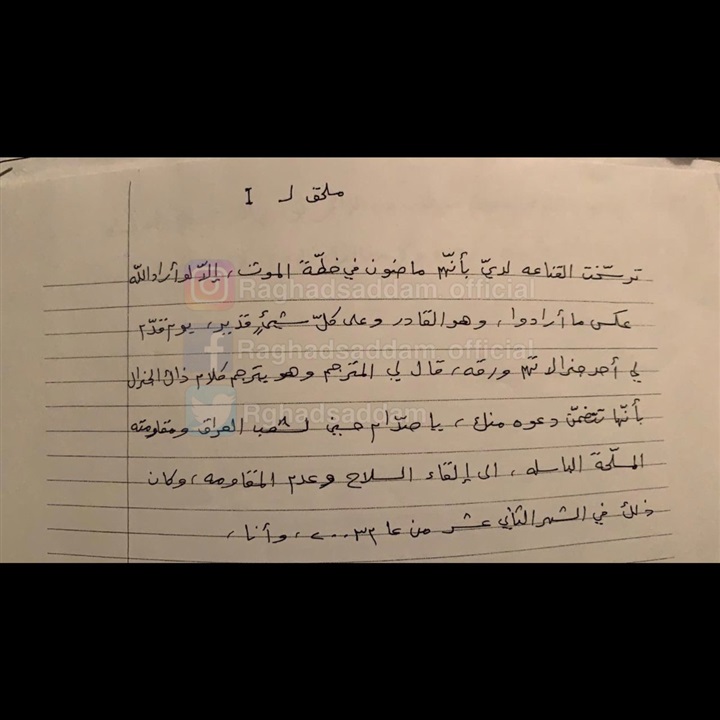 ملحق لـ I
ترسّخت القناعه لديّ بأنّهم ماضون في خطّة الموت، إلّا لو أراد الله
عكس ما أرادوا، وهو القادر وعلى كلّ شيئٍ قدير، يوم قدّم
لي أحد جنرالاتهم ورقه، قال لي المترجم وهو يترجم كلام ذلك الجنرال
بأنّها تتضمّن دعوه منك، يا صدّام حسين لشعب العراق ومقاومته
المسلّحة الباسله، الى إلقاء السلاح وعدم المقاومه، وكان
ذلك في الشهر الثاني عشر من عام ٢٠٠٣، وأنا،
Raghadsaddam_official
Raghadsaddam_official
Rghadsaddam